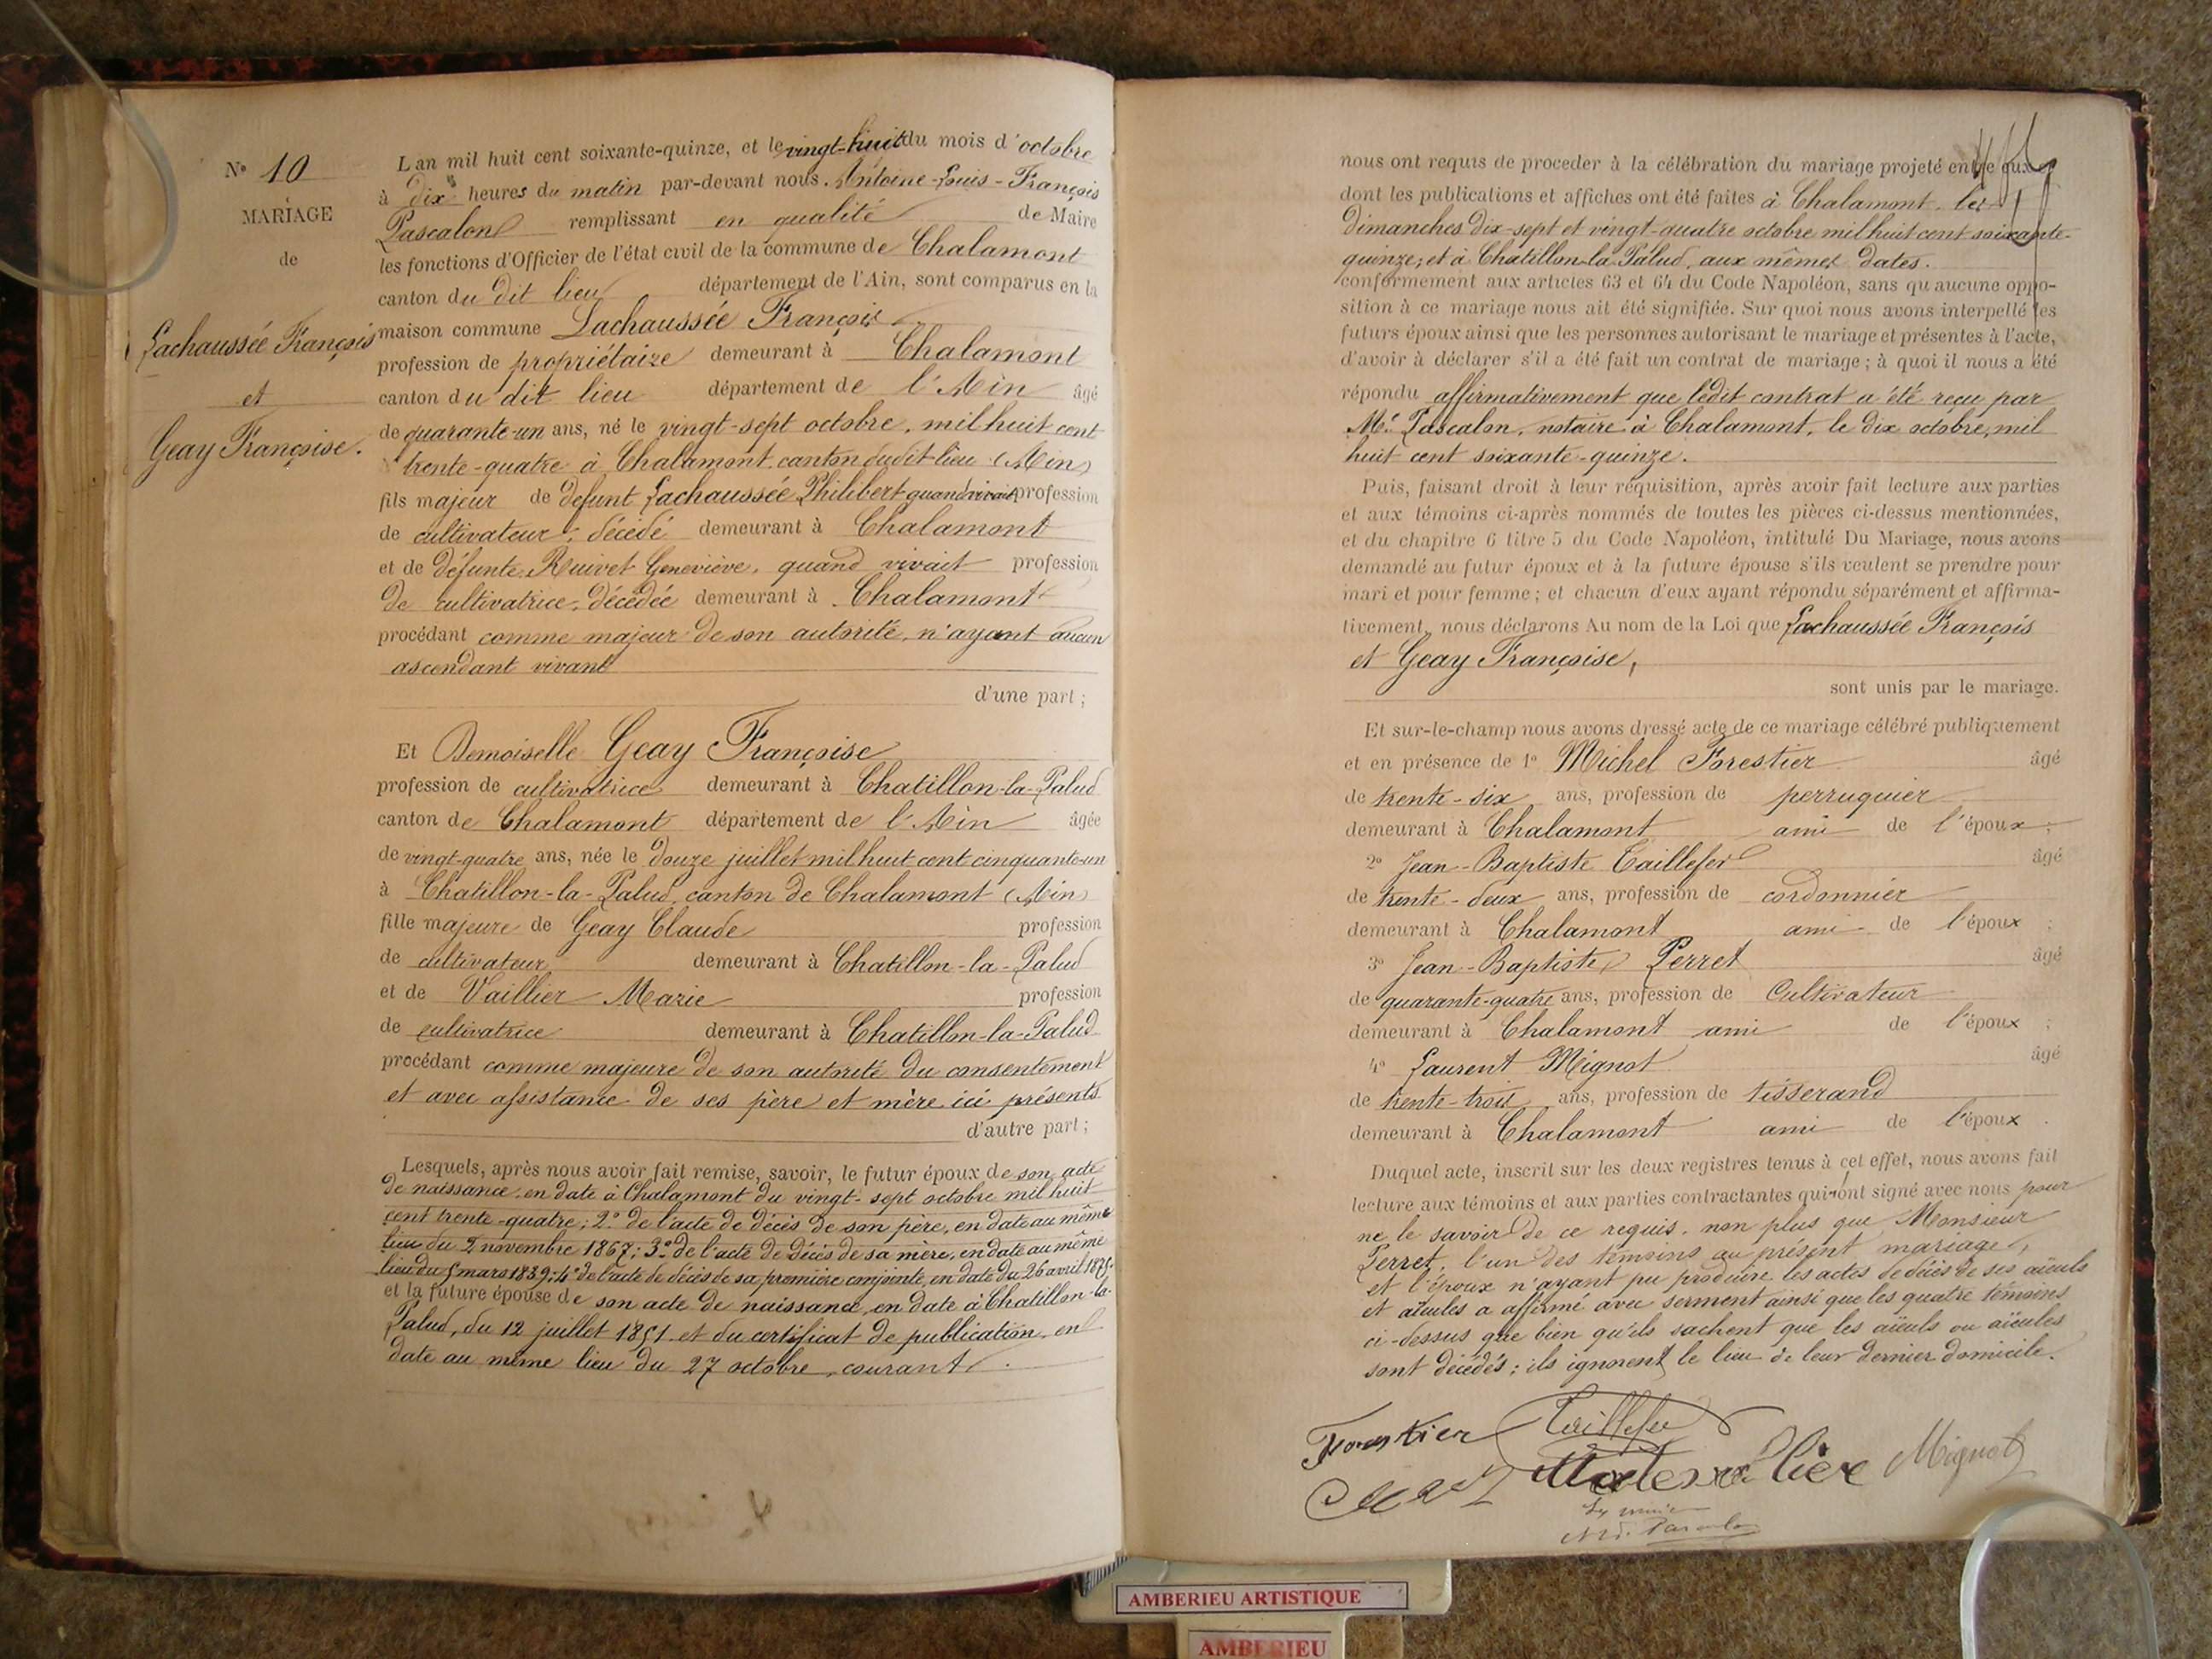 N° 10
MARIAGE
de
Lachaussée François
et
Geay Françoise.
L'an mil huit cent soixante-quinze, et le vingt-huit du mois d'octobre
à dix heures du matin par-devant nous Antoine-Louis-François
Pascalon remplissant en qualité de Maire
les fonctions d'Officier de l'état civil de la commune de Chalamont
canton du dit lieu département de l'Ain, sont comparus en la
maison commune Lachaussée François
profession de propriétaire demeurant à Chalamont
canton du dit lieu département de l'Ain âgé
de quarante-un ans, né le vingt-sept octobre, mil huit cent
trente-quatre à Chalamont, canton dudit lieu (Ain)
fils majeur de défunt Lachaussée Philibert quand vivait profession
de cultivateur, décédé demeurant à Chalamont
et de défunte Ruivet Geneviève, quand vivait profession
de cultivatrice, décédée demeurant à Chalamont
procédant comme majeur de son autorité, n'ayant aucun
ascendant vivant
d'une part ;
Et Demoiselle Geay Françoise
profession de cultivatrice demeurant à Chatillon-la-Palud
canton de Chalamont département de l'Ain âgée
de vingt-quatre ans, née le douze juillet mil huit cent cinquante-un
à Chatillon-la-Palud, canton de Chalamont (Ain)
fille majeure de Geay Claude profession
de cultivateur demeurant à Chatillon-la-Palud
et de Vaillier Marie profession
de cultivatrice demeurant à Chatillon-la-Palud
procédant comme majeure de son autorité du consentement
et avec assistance de ses père et mère ici présents
d'autre part ;
Lesquels, après nous avoir fait remise, savoir, le futur époux de son acte
de naissance, en date à Chalamont du vingt-sept octobre mil huit
cent trente-quatre; 2° de l'acte de décès de son père, en date au même
lieu du 2 novembre 1867; 3° de l'acte de décès de sa mère, en date au même
lieu du 5 mars 1839; 4° de l'acte de décès de sa première conjointe, en date du 26 avril 1875.
et la future épouse de son acte de naissance, en date à Chatillon-la-
Palud, du 12 juillet 1851 et du certificat de publication, en
date au même lieu du 27 octobre, courant.
nous ont requis de procéder à la célébration du mariage projeté entre eux
dont les publications et affiches ont été faites à Chalamont, les
dimanches dix-sept et vingt-quatre octobre mil huit cent soixante-
quinze; et à Chatillon-la-Palud, aux mêmes dates.
conformément aux articles 63 et 64 du Code Napoléon, sans qu'aucune oppo-
sition à ce mariage nous ait été signifiée. Sur quoi nous avons interpellé les
futurs époux ainsi que les personnes autorisant le mariage et présentes à l'acte,
d'avoir à déclarer s'il a été fait un contrat de mariage ; à quoi il nous a été
répondu affirmativement que ledit contrat a été reçu par
Me. Pascalon, notaire à Chalamont, le dix octobre, mil
huit cent soixante-quinze.
Puis, faisant droit à leur réquisition, après avoir fait lecture aux parties
et aux témoins ci-après nommés de toutes les pièces ci-dessus mentionnées,
et du chapitre 6 titre 5 du Code Napoléon, intitulé Du Mariage, nous avons
demandé au futur époux et à la future épouse s'ils veulent se prendre pour
mari et pour femme ; et chacun d'eux ayant répondu séparément et affirma-
tivement, nous déclarons Au nom de la Loi que Lachaussée François
et Geay Françoise,
sont unis par le mariage.
Et sur-le-champ nous avons dressé acte de ce mariage célébré publiquement
et en présence de 1° Michel Forestier âgé
de trente-six ans, profession de perruquier
demeurant à Chalamont ami de l'époux ;
2° Jean-Baptiste Taillefer âgé
de trente-deux ans, profession de cordonnier
demeurant à Chalamont ami de l'époux ;
3° Jean-Baptiste Perret âgé
de quarante-quatre ans, profession de Cultivateur
demeurant à Chalamont ami de l'époux ;
4° Laurent Mignot âgé
de trente-trois ans, profession de tisserand
demeurant à Chalamont ami de l'époux .
Duquel acte, inscrit sur les deux registres tenus à cet effet, nous avons fait
lecture aux témoins et aux parties contractantes qui ont signé avec nous pour
ne le savoir de ce requis, non plus que Monsieur
Perret, l'un des témoins au présent mariage,
et l'époux n'ayant pu produire les actes de décès de ses aïeuls
et aïeules a affirmé avec serment ainsi que les quatre témoins
ci-dessus que bien qu'ils sachent que les aïeuls ou aïeules
sont décédés; ils ignorent le lieu de leur dernier domicile.
Forestier Taillefer
Mignot
Le maire
Pascalon
AMBERIEU ARTISTIQUE
AMBERIEU